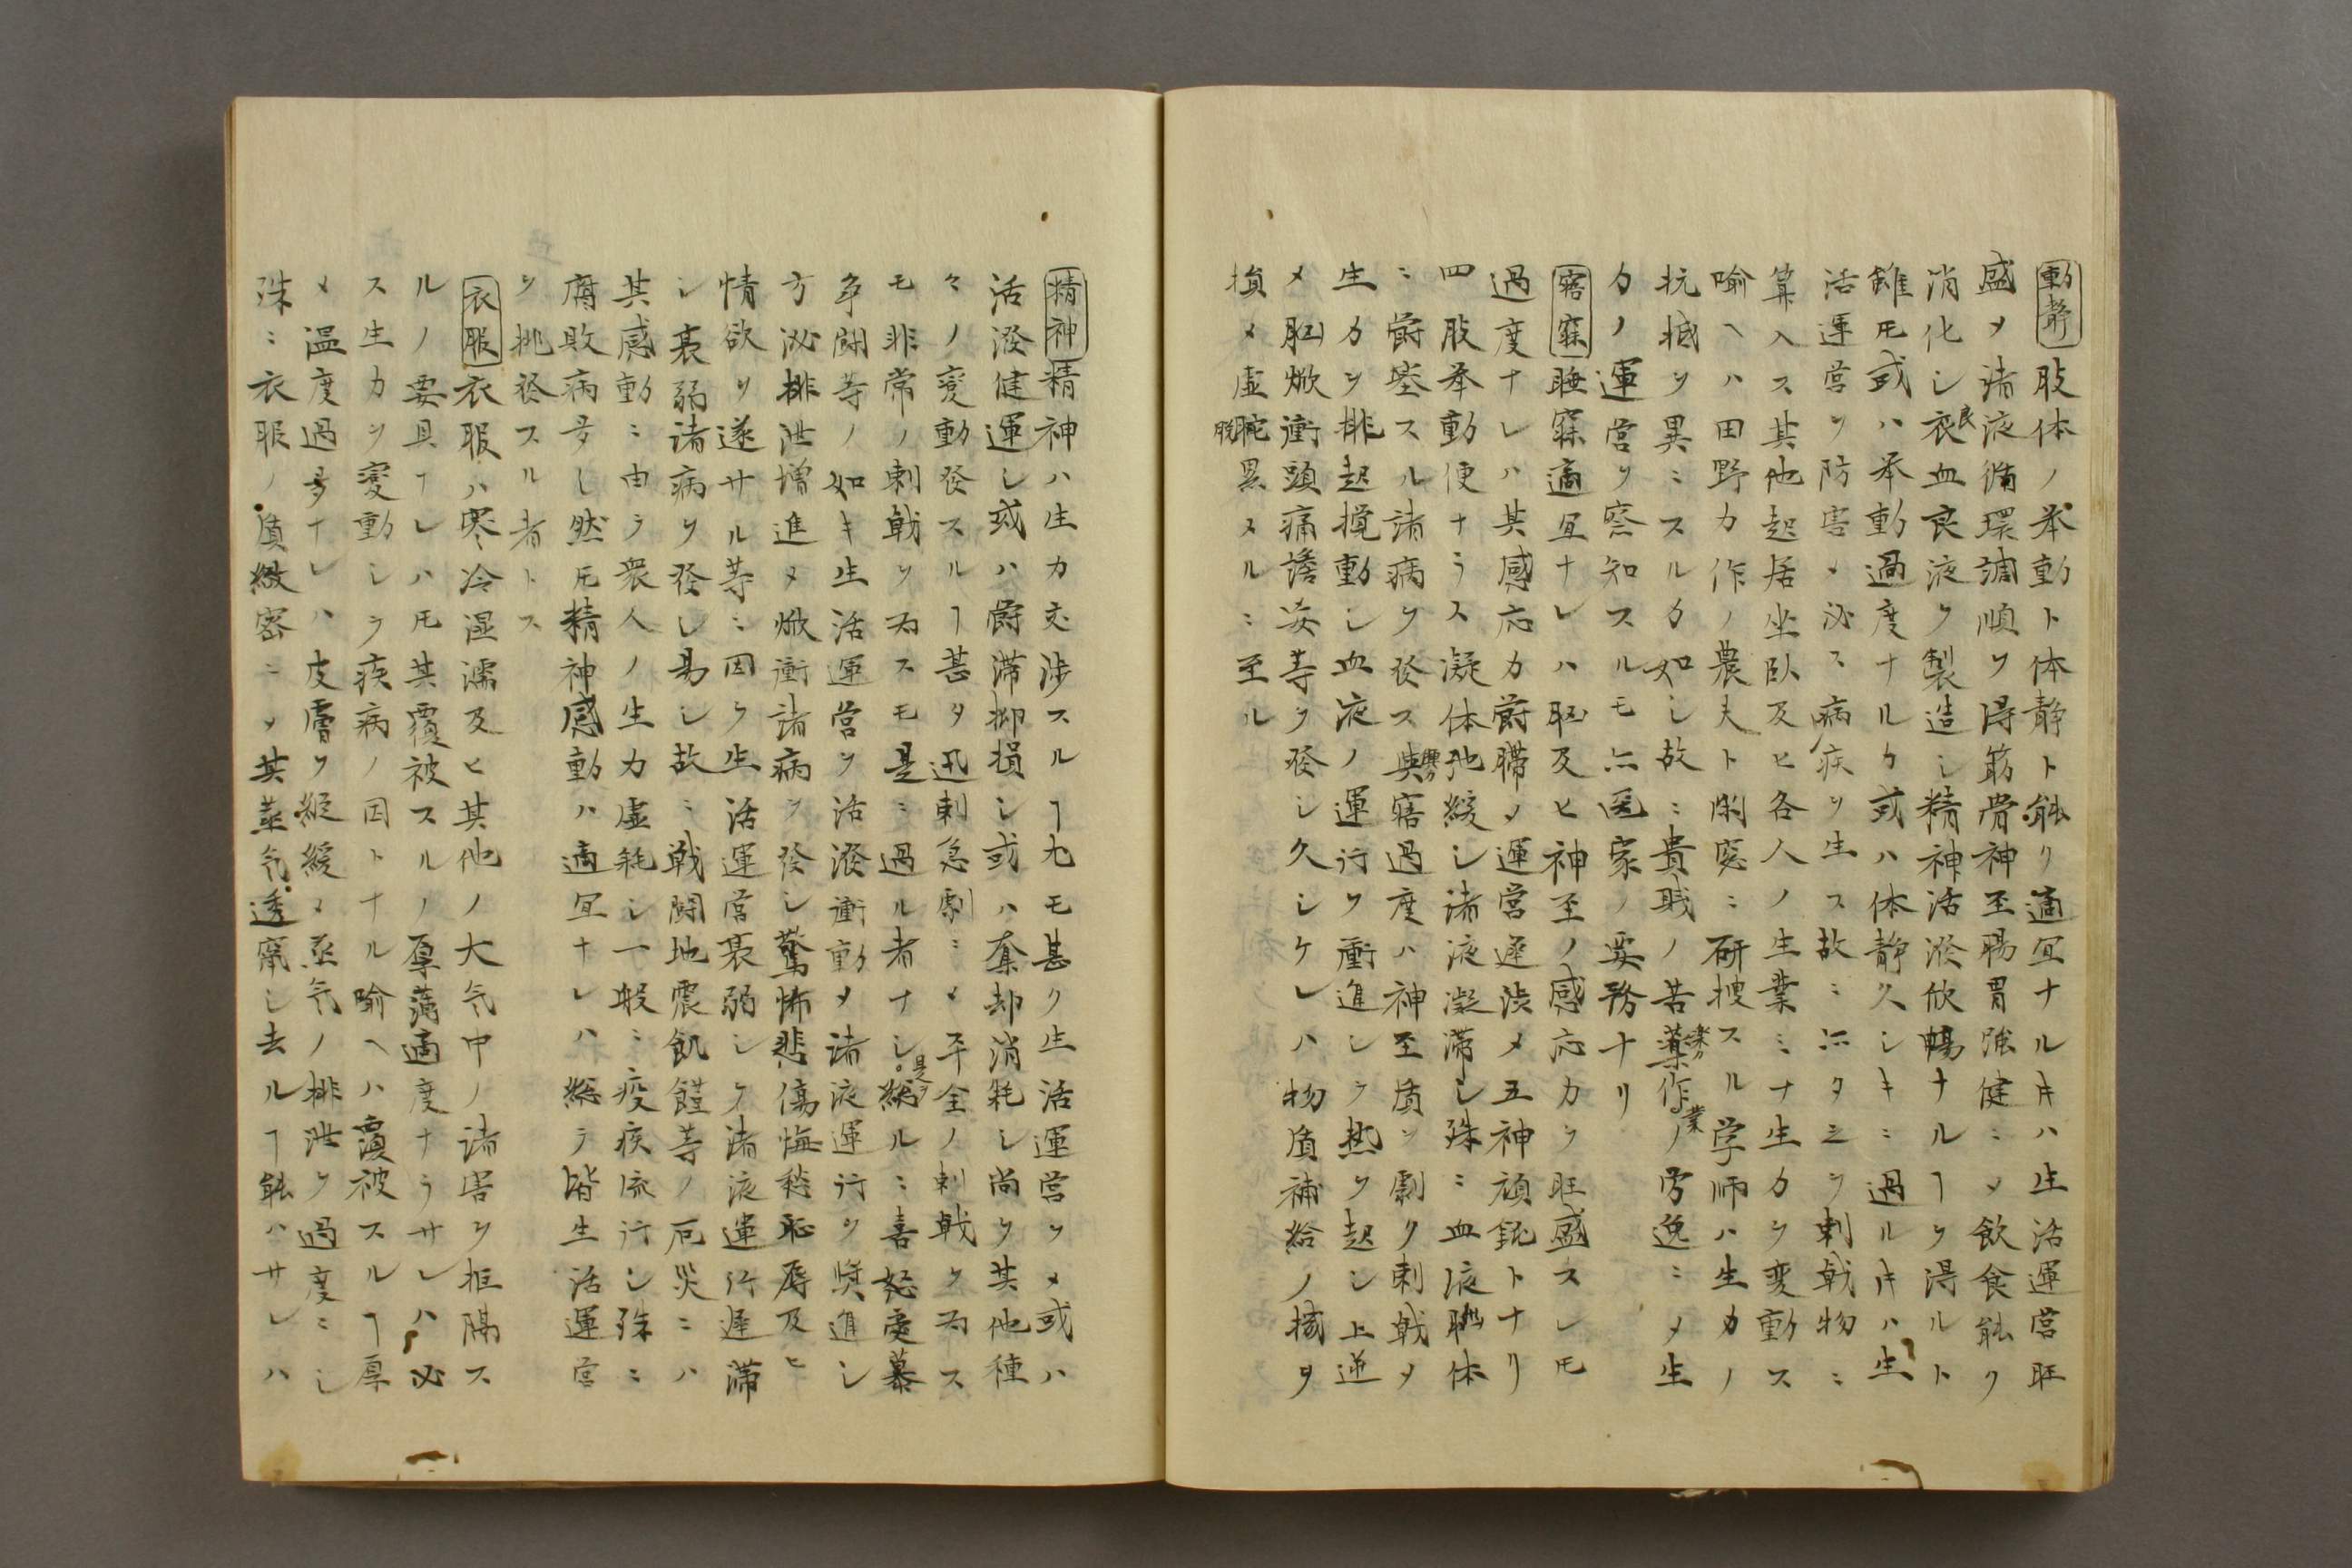 動静 肢体ノ挙動ト体静ト能ク適冝ナルキハ生活運営旺
盛メ諸液循環調順ヲ得筋骨神至腸胃強健ニメ飲食能ク
消化シ衣良血良液ヲ製造シ精神活溌欣暢ナルヿヲ得ルト
雖𪜈或ハ挙動過度ナルカ或ハ体静久シキニ過ルキハ生
活運営ヲ防害メ必ス病疾ヲ生ス故ニ亦タ之ヲ刺戟物ニ
算入ス其他起居坐臥及ヒ各人ノ生業ミナ生力ヲ変動ス
喩ヘハ田野力作ノ農夫ト閑窓ニ研捜スル学師ハ生力ノ
抗抵ヲ異ニスルカ如シ故ニ貴賎ノ苦薬楽カ作業ノ労逸ニメ生
力ノ運営ヲ察知スルモ亦医家ノ要務ナリ
寤寐 睡寐適冝ナレハ䏏及ヒ神至ノ感応力ヲ旺盛スレ𪜈
過度ナレハ其感応力欝滞メ運営遅渋メ五神頑鈍トナリ
四肢挙動便ナラス凝体弛緩シ諸液凝滞シ殊ニ血液䏏体
ニ欝塞スル諸病ヲ発ス興寤過度ハ神至質ヲ劇ク刺戟メ
生力ヲ排起撹動シ血液ノ運行ヲ衝進シテ熱ヲ起シ上逆
メ䏏焮衝頭痛譫妄等ヲ発シ久シケレハ物質補給ノ機ヲ
損メ虚脱累スルニ至ル
精神 精神ハ生力交渉スルヿ尤モ甚ク生活運営ヲメ或ハ
活溌健運シ或ハ欝滞抑損シ或ハ奪却消耗シ尚ヲ其他種
々ノ変動発スルヿ甚タ迅刺急劇ニメ平全ノ刺戟ヲ為ス
モ非常ノ刺戟ヲ為スモ是ニ過ル者ナシ是ヲ総ルニ喜怒愛慕
争闘等ノ如キ生活運営ヲ活溌衝動メ諸液運行ヲ奨進シ
方泌排泄増進メ焮衝諸病ヲ発シ驚怖悲傷悔愁恥辱及ヒ
情欲ヲ遂サル等ニ因テ生活運営衰弱シテ諸液運行遅滞
シ衰弱諸病ヲ発シ易シ故ニ戦闘地震飢饉等ノ厄災ニハ
其感動ニ由テ衆人ノ生力虚耗シ一般ニ疫疾流行シ殊ニ
腐敗病多シ然𪜈精神感動ハ適冝ナレハ総テ皆生活運営
ヲ挑発スル者トス
衣服 衣服ハ寒冷湿濡及ヒ其他ノ大気中ノ諸害ヲ拒隔ス
ルノ要具ナレハ𪜈其覆被スルノ厚薄適度ナラサレハ必
ス生力ヲ変動シテ疾病ノ因トナル喩ヘハ覆被スルヿ厚
メ温度過多ナレハ皮膚ヲ縦緩メ蒸気ノ排泄ヲ過度ニシ
殊ニ衣服ノ質緻密ニメ其蒸気透竄シ去ルヿ能ハサレハ